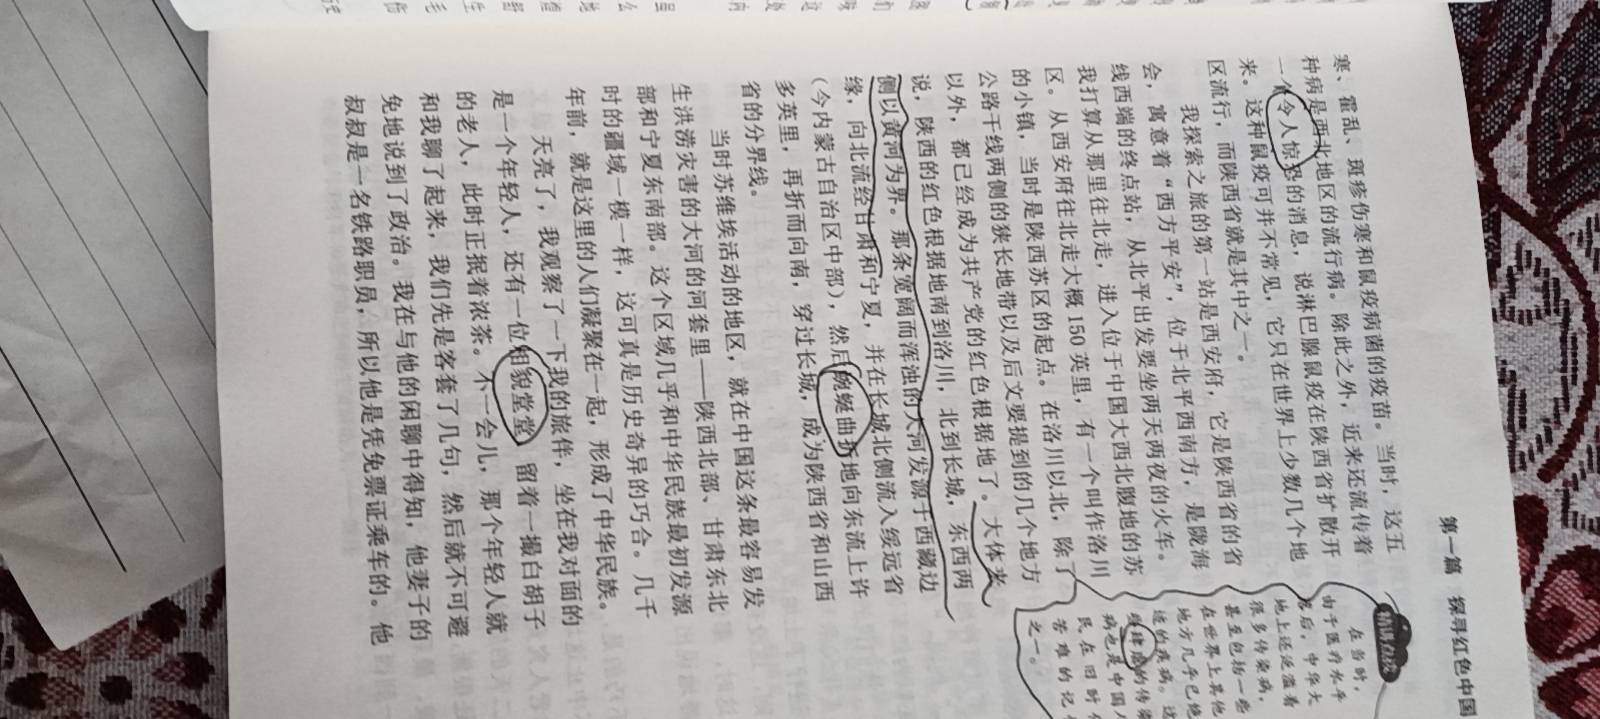 第一篇 探寻红色中国
寒、霍乱、斑疹伤寒和鼠疫病菌的疫苗。当时，这五
种病是西北地区的流行病。除此之外，近来还流传着
一个令人惊恐的消息，说淋巴腺鼠疫在陕西省扩散开
来。这种鼠疫可并不常见，它只在世界上少数几个地
区流行，而陕西省就是其中之一。
我探索之旅的第一站是西安府，它是陕西省的省
会，寓意着“西方平安”，位于北平西南方，是陇海
线西端的终点站，从北平出发要坐两天两夜的火车。
我打算从那里往北走，进入位于中国大西北腹地的苏
区。从西安府往北走大概150英里，有一个叫作洛川
的小镇，当时是陕西苏区的起点。在洛川以北，除了
公路干线两侧的狭长地带以及后文要提到的几个地方
以外，都已经成为共产党的红色根据地了。大体来
说，陕西的红色根据地南到洛川，北到长城，东西两
侧以黄河为界。那条宽阔而浑浊的大河发源于西藏边
缘，向北流经甘肃和宁夏，并在长城北侧流入绥远省
（今内蒙古自治区中部），然后蜿蜒曲折地向东流上许
多英里，再折而向南，穿过长城，成为陕西省和山西
省的分界线。
当时苏维埃活动的地区，就在中国这条最容易发
生洪涝灾害的大河的河套里——陕西北部、甘肃东北
部和宁夏东南部。这个区域几乎和中华民族最初发源
时的疆域一模一样，这可真是历史奇异的巧合。几千
年前，就是这里的人们凝聚在一起，形成了中华民族。
天亮了，我观察了一下我的旅伴，坐在我对面的
是一个年轻人，还有一位相貌堂堂、留着一撮白胡子
的老人，此时正抿着浓茶。不一会儿，那个年轻人就
和我聊了起来，我们先是客套了几句，然后就不可避
免地说到了政治。我在与他的闲聊中得知，他妻子的
叔叔是一名铁路职员，所以他是凭免票证乘车的。他
在当时，
由于医疗水平
落后，中华大
地上还泛滥着
很多传染病，
甚至包括一些
在世界上其他
地方几乎已绝
迹的疾病。这
病也是中国人
民在旧时
苦难的记
之一。